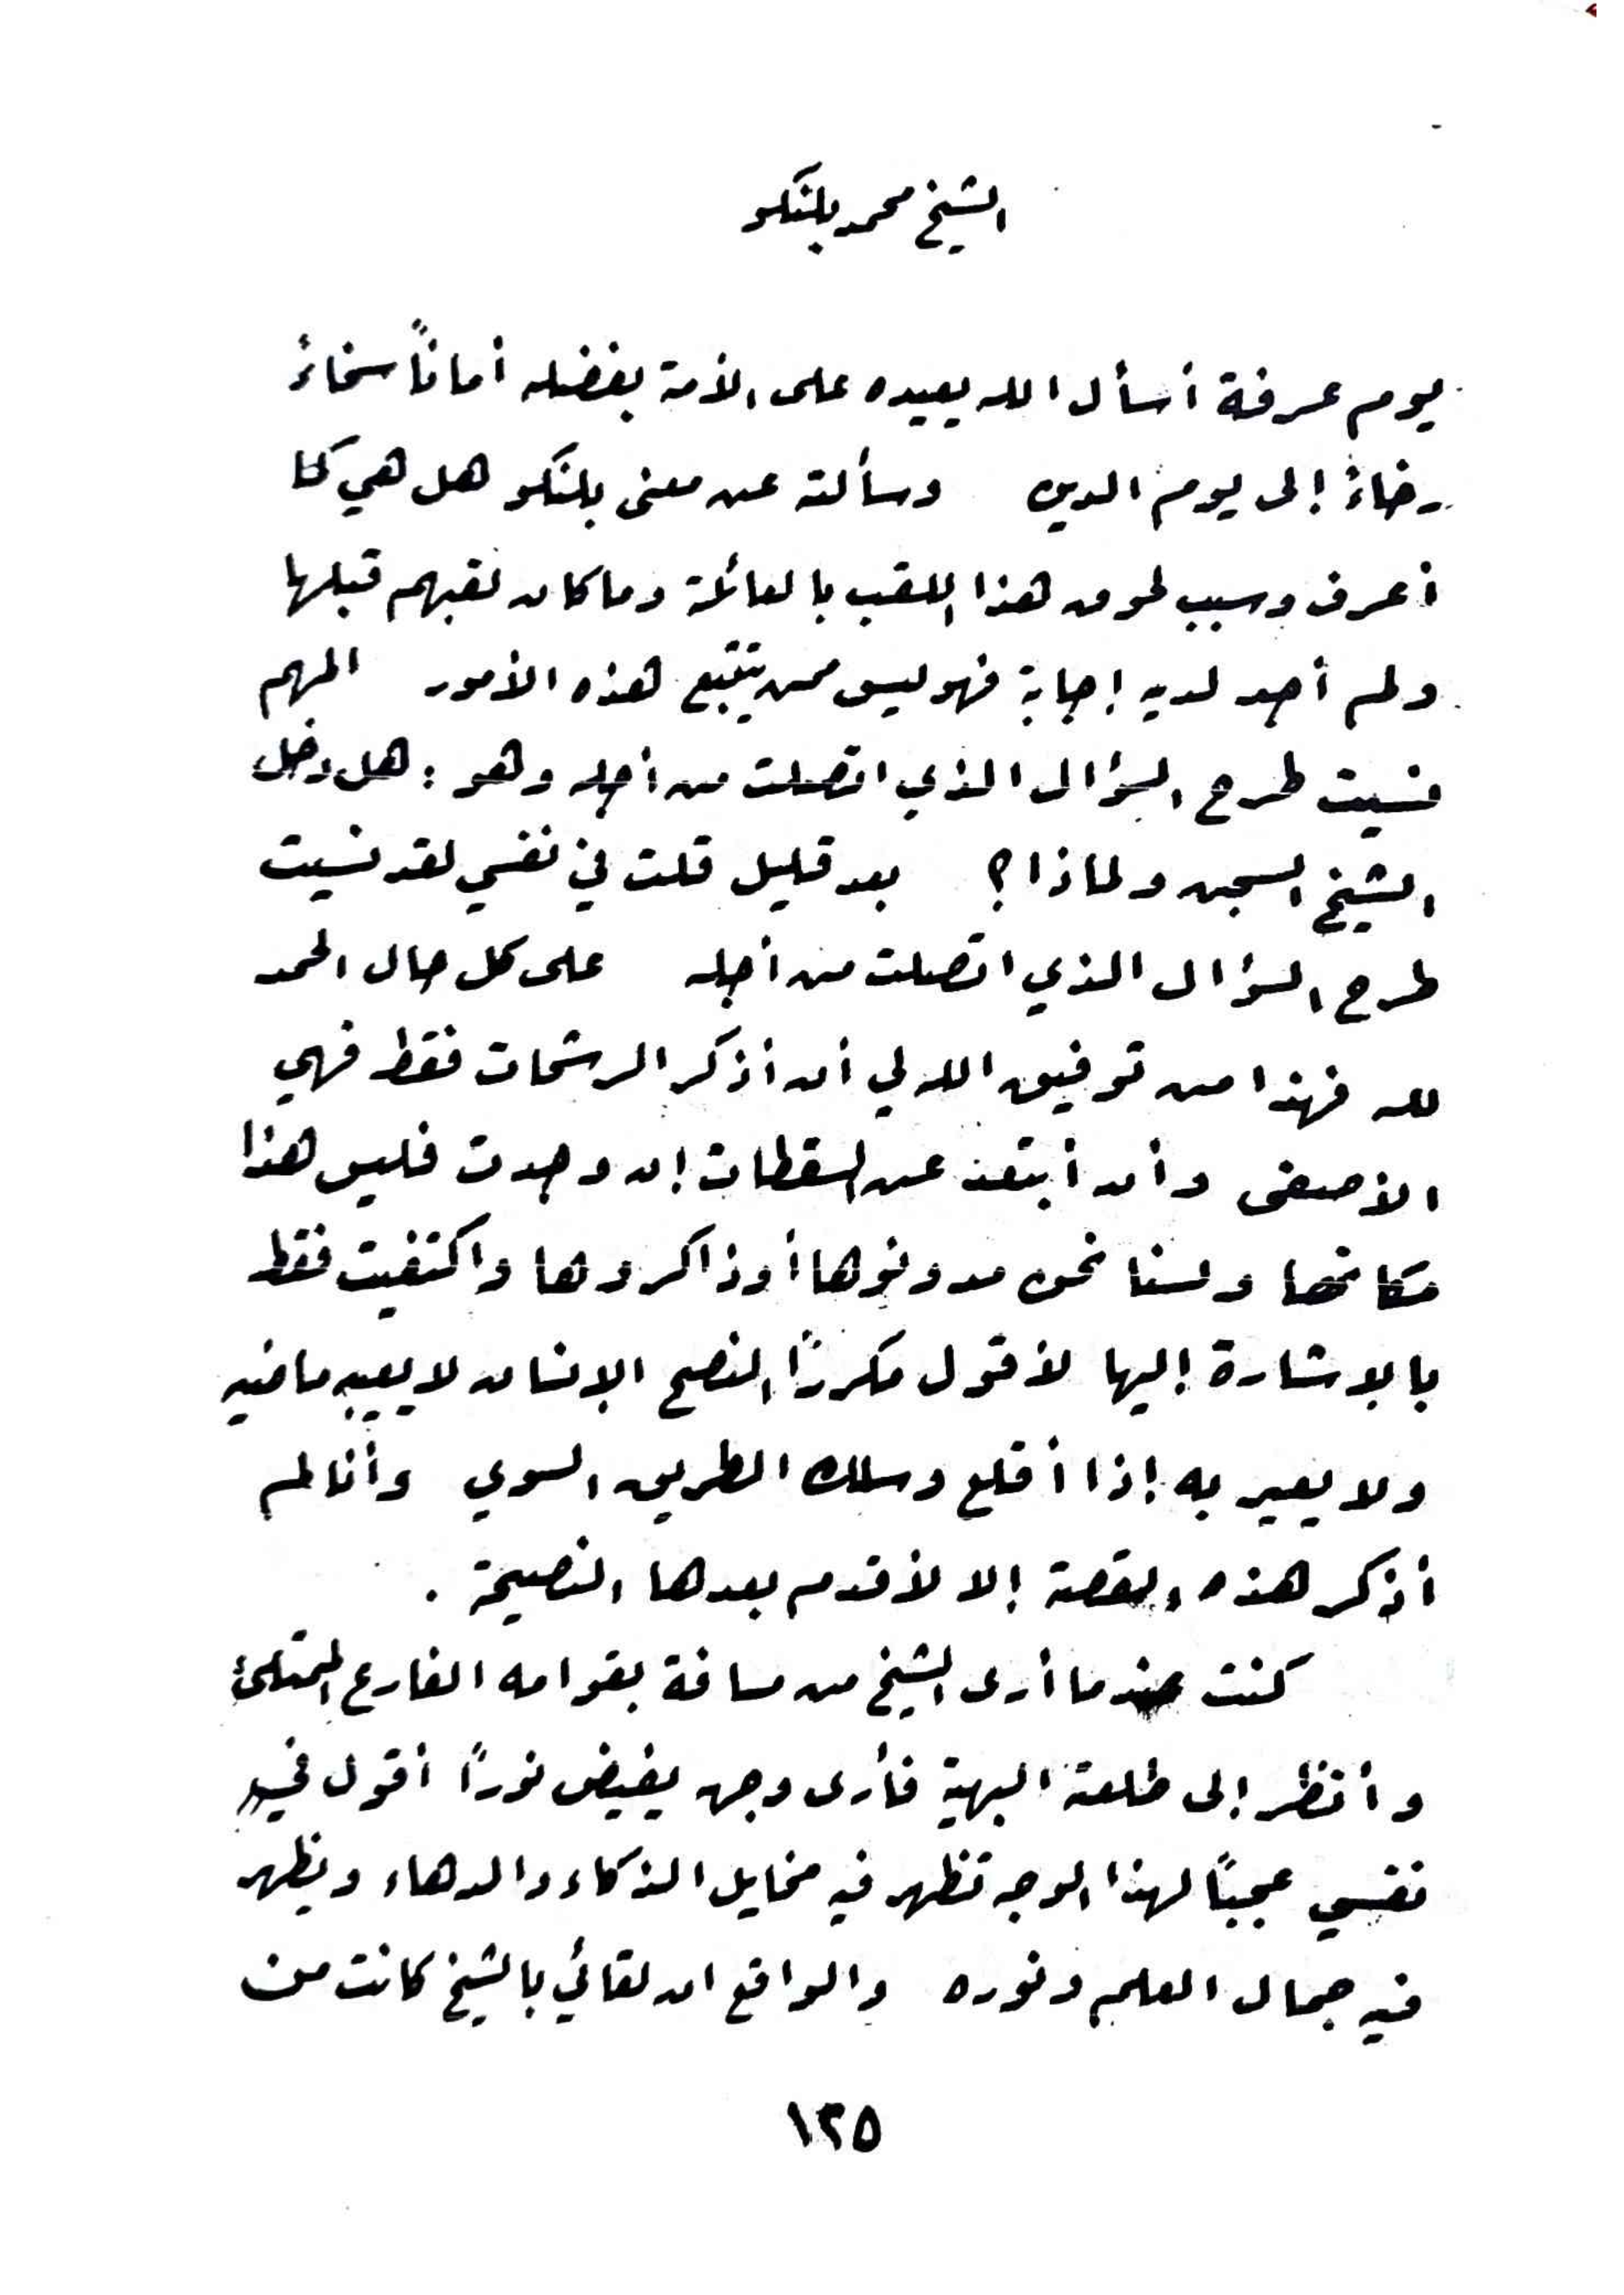 الشيخ محمد بلنكو
يوم عرفة أسأل الله يعيده على الأمة بفضله أماناً سخاءً
رخاءً إلى يوم الدين وسألته عن معنى بلنكو هل هي كما
أعرف وسبب لحوق هذا اللقب بالعائلة وما كان لقبهم قبلها
ولم أجد لديه إجابة فهو ليس ممن يتتبع هذه الأمور المهم
نسيت طرح السؤال الذي اتصلت من أجله وهو : هل دخل
الشيخ السجن ولماذا ؟ بعد قليل قلت في نفسي لقد نسيت
طرح السؤال الذي اتصلت من أجله على كل حال الحمد
لله فهذا من توفيق الله لي أن أذكر الرشحات فقط فهي
الأصفى وأن أبتعد عن السقطات إن وجدت فليس هذا
مكانها ولسنا نحن مدونوها أو ذاكروها واكتفيت فقط
بالإشارة إليها لأقول مكرراً النصح الإنسان لا يعيبه ماضيه
ولا يعير به إذا أقلع وسلك الطريق السوي وأنا لم
أذكر هذه القصة إلا لأقدم بعدها النصيحة .
كنت عندما أرى الشيخ من مسافة بقوامه الفارع الممتلئ
وأنظر إلى طلعته البهية فأرى وجه يفيض نوراً أقول في
نفسي عجباً لهذا الوجه تظهر فيه مخايل الذكاء والدهاء ويظهر
فيه جمال العلم ونوره والواقع ان لقائي بالشيخ كانت من
١٣٥